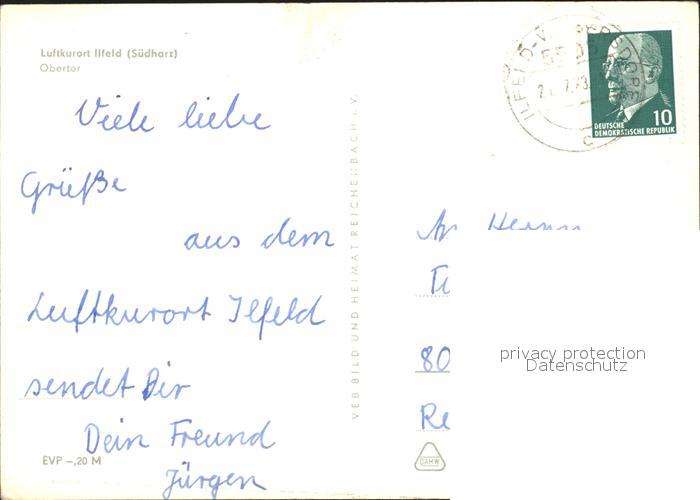 Luftkurort Ilfeld (Südharz)
Obertor
Viele liebe
Grüße
aus dem
Luftkurort Ilfeld
sendet Dir
Dein Freund
Jürgen
EVP -,20 M
VEB BILD UND HEIMAT REICHENBACH i. V.
10
DEUTSCHE
DEMOKRATISCHE REPUBLIK
An Herrn
80
privacy protection
Datenschutz
DAMW